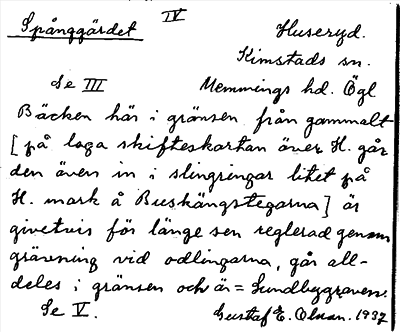 Spånggärdet IV Huseryd.
Kimstads sn.
Se III Memmings hd. Ögl
Bäcken här i gränsen från gammalt
[på laga skifteskartan över H. går
den även in i slingringar litet på
H. mark å Buskängstegarna] är
givetvis för länge sen reglerad genom
grävning vid odlingarna, går all-
deles i gränsen och är = Lundbygraven.
Se V. Gustaf E. Olman. 1937